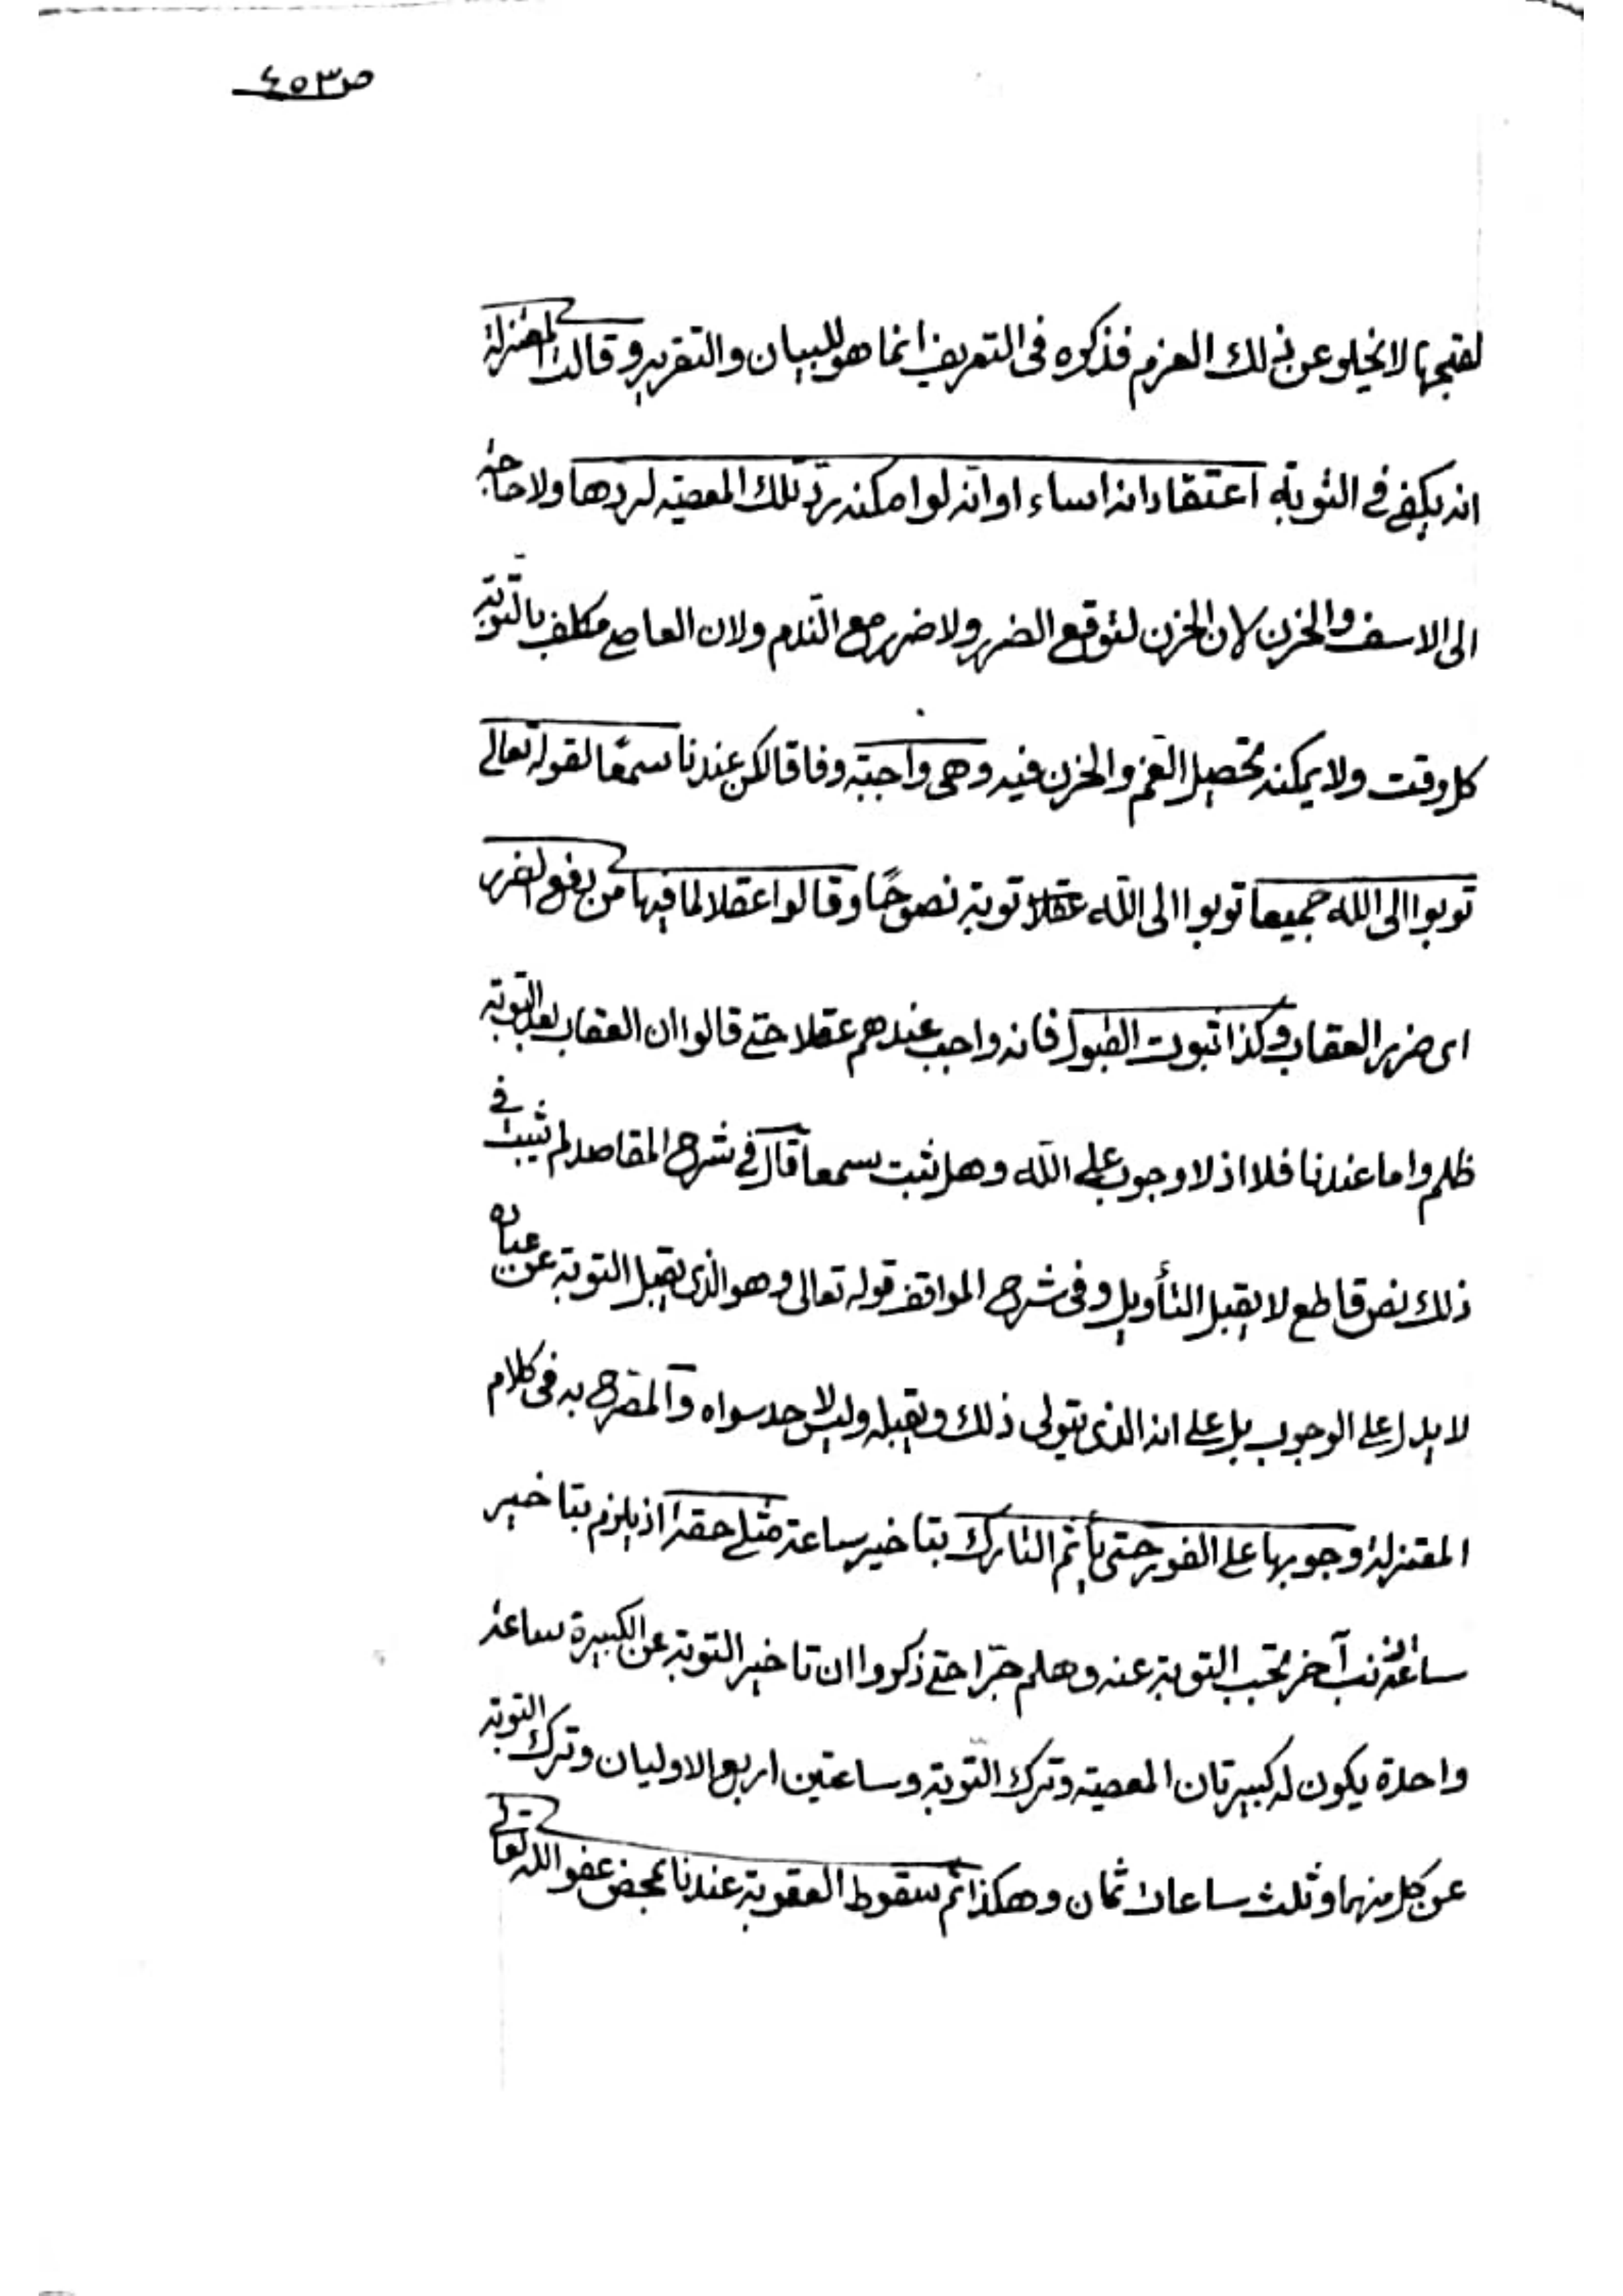 ص٤٥٣
لقبحها لا يخلو عن ذلك العزم فذكره فى التعريف انما هو للبيان والتقرير وقالت المعتزلة
انه يكفى فى التوبة اعتقاد انه اساء او انه لو امكنه رد تلك المعصية لردها ولا حاجة
الى الاسف والحزن لان الحزن لتوقع الضرر ولا ضرر مع الندم ولان العاصى مكلف بالتوبة
كل وقت ولا يمكنه تحصيل الغم والحزن فيه وهى واجبة وفاقا لكن عندنا سمعًا لقوله تعالى
توبوا الى الله جميعا توبوا الى الله توبة نصوحًا وقالوا عقلا لما فيها من دفع الضرر
اى ضرر العقاب وكذا ثبوت القبول فانه واجب عندهم عقلا حتى قالوا ان العقاب بعد التوبة
ظلم واما عندنا فلا اذ لا وجوب على الله وهل ثبت سمعا قال فى شرح المقاصد لم يثبت فى
ذلك نص قاطع لا يقبل التأويل وفى شرح المواقف قوله تعالى وهو الذى يقبل التوبة عن عباده
لا يدل على الوجوب بل على انه الذى يتولى ذلك ويقبله وليس لاحد سواه والمصرح به فى كلام
المعتزلة وجوبها على الفور حتى يأثم التارك بتاخير ساعة مثلى حقه اذ يلزم بتاخير
ساعة ذنب آخر تجب التوبة عنه وهلم جرّا حتى ذكروا ان تاخير التوبة عن الكبيرة ساعة
واحدة يكون له كبيرتان المعصية وترك التوبة وساعتين اربع الاوليان وترك التوبة
عن كل منهما وثلث ساعات ثمان وهكذا ثم سقوط العقوبة عندنا بمحض عفو الله تعالى